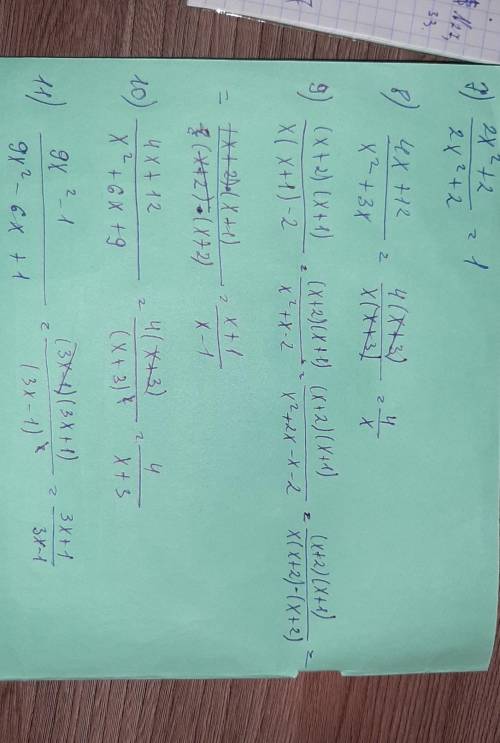 7) (2x²+2)/(2x²+2) = 1
8) (4x+12)/(x²+3x) = 4(x+3)/x(x+3) = 4/x
9) (x+2)(x+1)/(x(x+1)-2) = (x+2)(x+1)/(x²+x-2) = (x+2)(x+1)/(x²+2x-x-2) = (x+2)(x+1)/(x(x+2)-(x+2)) =
= (x+2)·(x+1)/(x+2)·(x+2) = (x+1)/(x-1)
10) (4x+12)/(x²+6x+9) = 4(x+3)/(x+3)² = 4/(x+3)
11) (9x²-1)/(9x²-6x+1) = (3x-1)(3x+1)/(3x-1)² = (3x+1)/(3x-1)